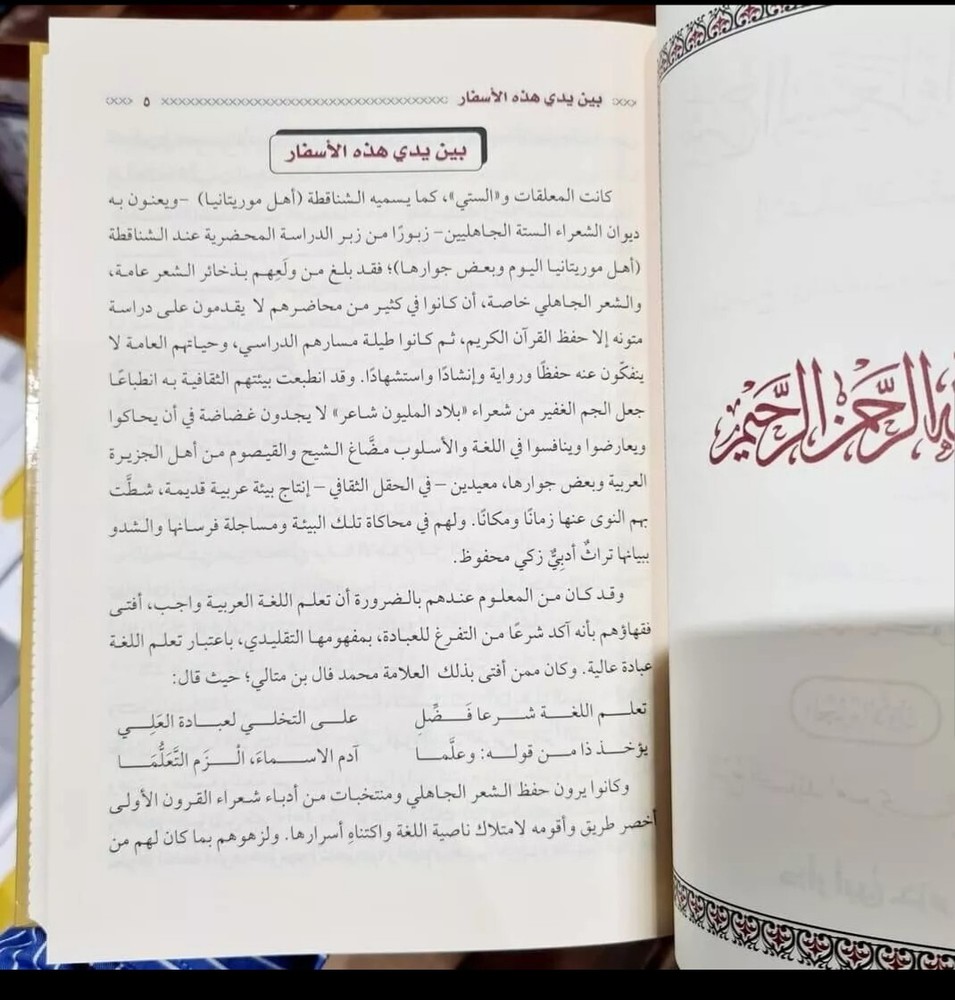 بين يدي هذه الأسفار ٥
بين يدي هذه الأسفار
كانت المعلقات و«الستي»، كما يسميه الشناقطة (أهل موريتانيا) -ويعنون به
ديوان الشعراء الستة الجاهليين- زبورًا من زبر الدراسة المحضرية عند الشناقطة
(أهل موريتانيا اليوم وبعض جوارها)؛ فقد بلغ من ولَعِهم بذخائر الشعر عامة،
والشعر الجاهلي خاصة، أن كانوا في كثير من محاضرهم لا يقدمون على دراسة
متونه إلا حفظ القرآن الكريم، ثم كانوا طيلة مسارهم الدراسي، وحياتهم العامة لا
ينفكّون عنه حفظًا ورواية وإنشادًا واستشهادًا. وقد انطبعت بيئتهم الثقافية به انطباعًا
جعل الجم الغفير من شعراء «بلاد المليون شاعر» لا يجدون غضاضة في أن يحاكوا
ويعارضوا وينافسوا في اللغة والأسلوب مضَّاغ الشيح والقيصوم من أهل الجزيرة
العربية وبعض جوارها، معيدين – في الحقل الثقافي – إنتاج بيئة عربية قديمة، شطَّت
بهم النوى عنها زمانًا ومكانًا. ولهم في محاكاة تلك البيئة ومساجلة فرسانها والشدو
ببيانها تراثٌ أدبِيٌّ زكي محفوظ.
وقد كان من المعلوم عندهم بالضرورة أن تعلم اللغة العربية واجب، أفتى
فقهاؤهم بأنه آكد شرعًا من التفرغ للعبادة، بمفهومها التقليدي، باعتبار تعلم اللغة
عبادة عالية. وكان ممن أفتى بذلك العلامة محمد فال بن متالي؛ حيث قال:
تعلم اللغة شرعا فَضِّل على التخلي لعبادة العَلِي
يؤخذ ذا من قوله: وعلَّما آدم الاسماءَ، الْزَم التَّعَلُّمَا
وكانوا يرون حفظ الشعر الجاهلي ومنتخبات من أدباء شعراء القرون الأولى
أخصر طريق وأقومه لامتلاك ناصية اللغة واكتناهِ أسرارها. ولزهوهم بما كان لهم من
الرحمن الرحيم